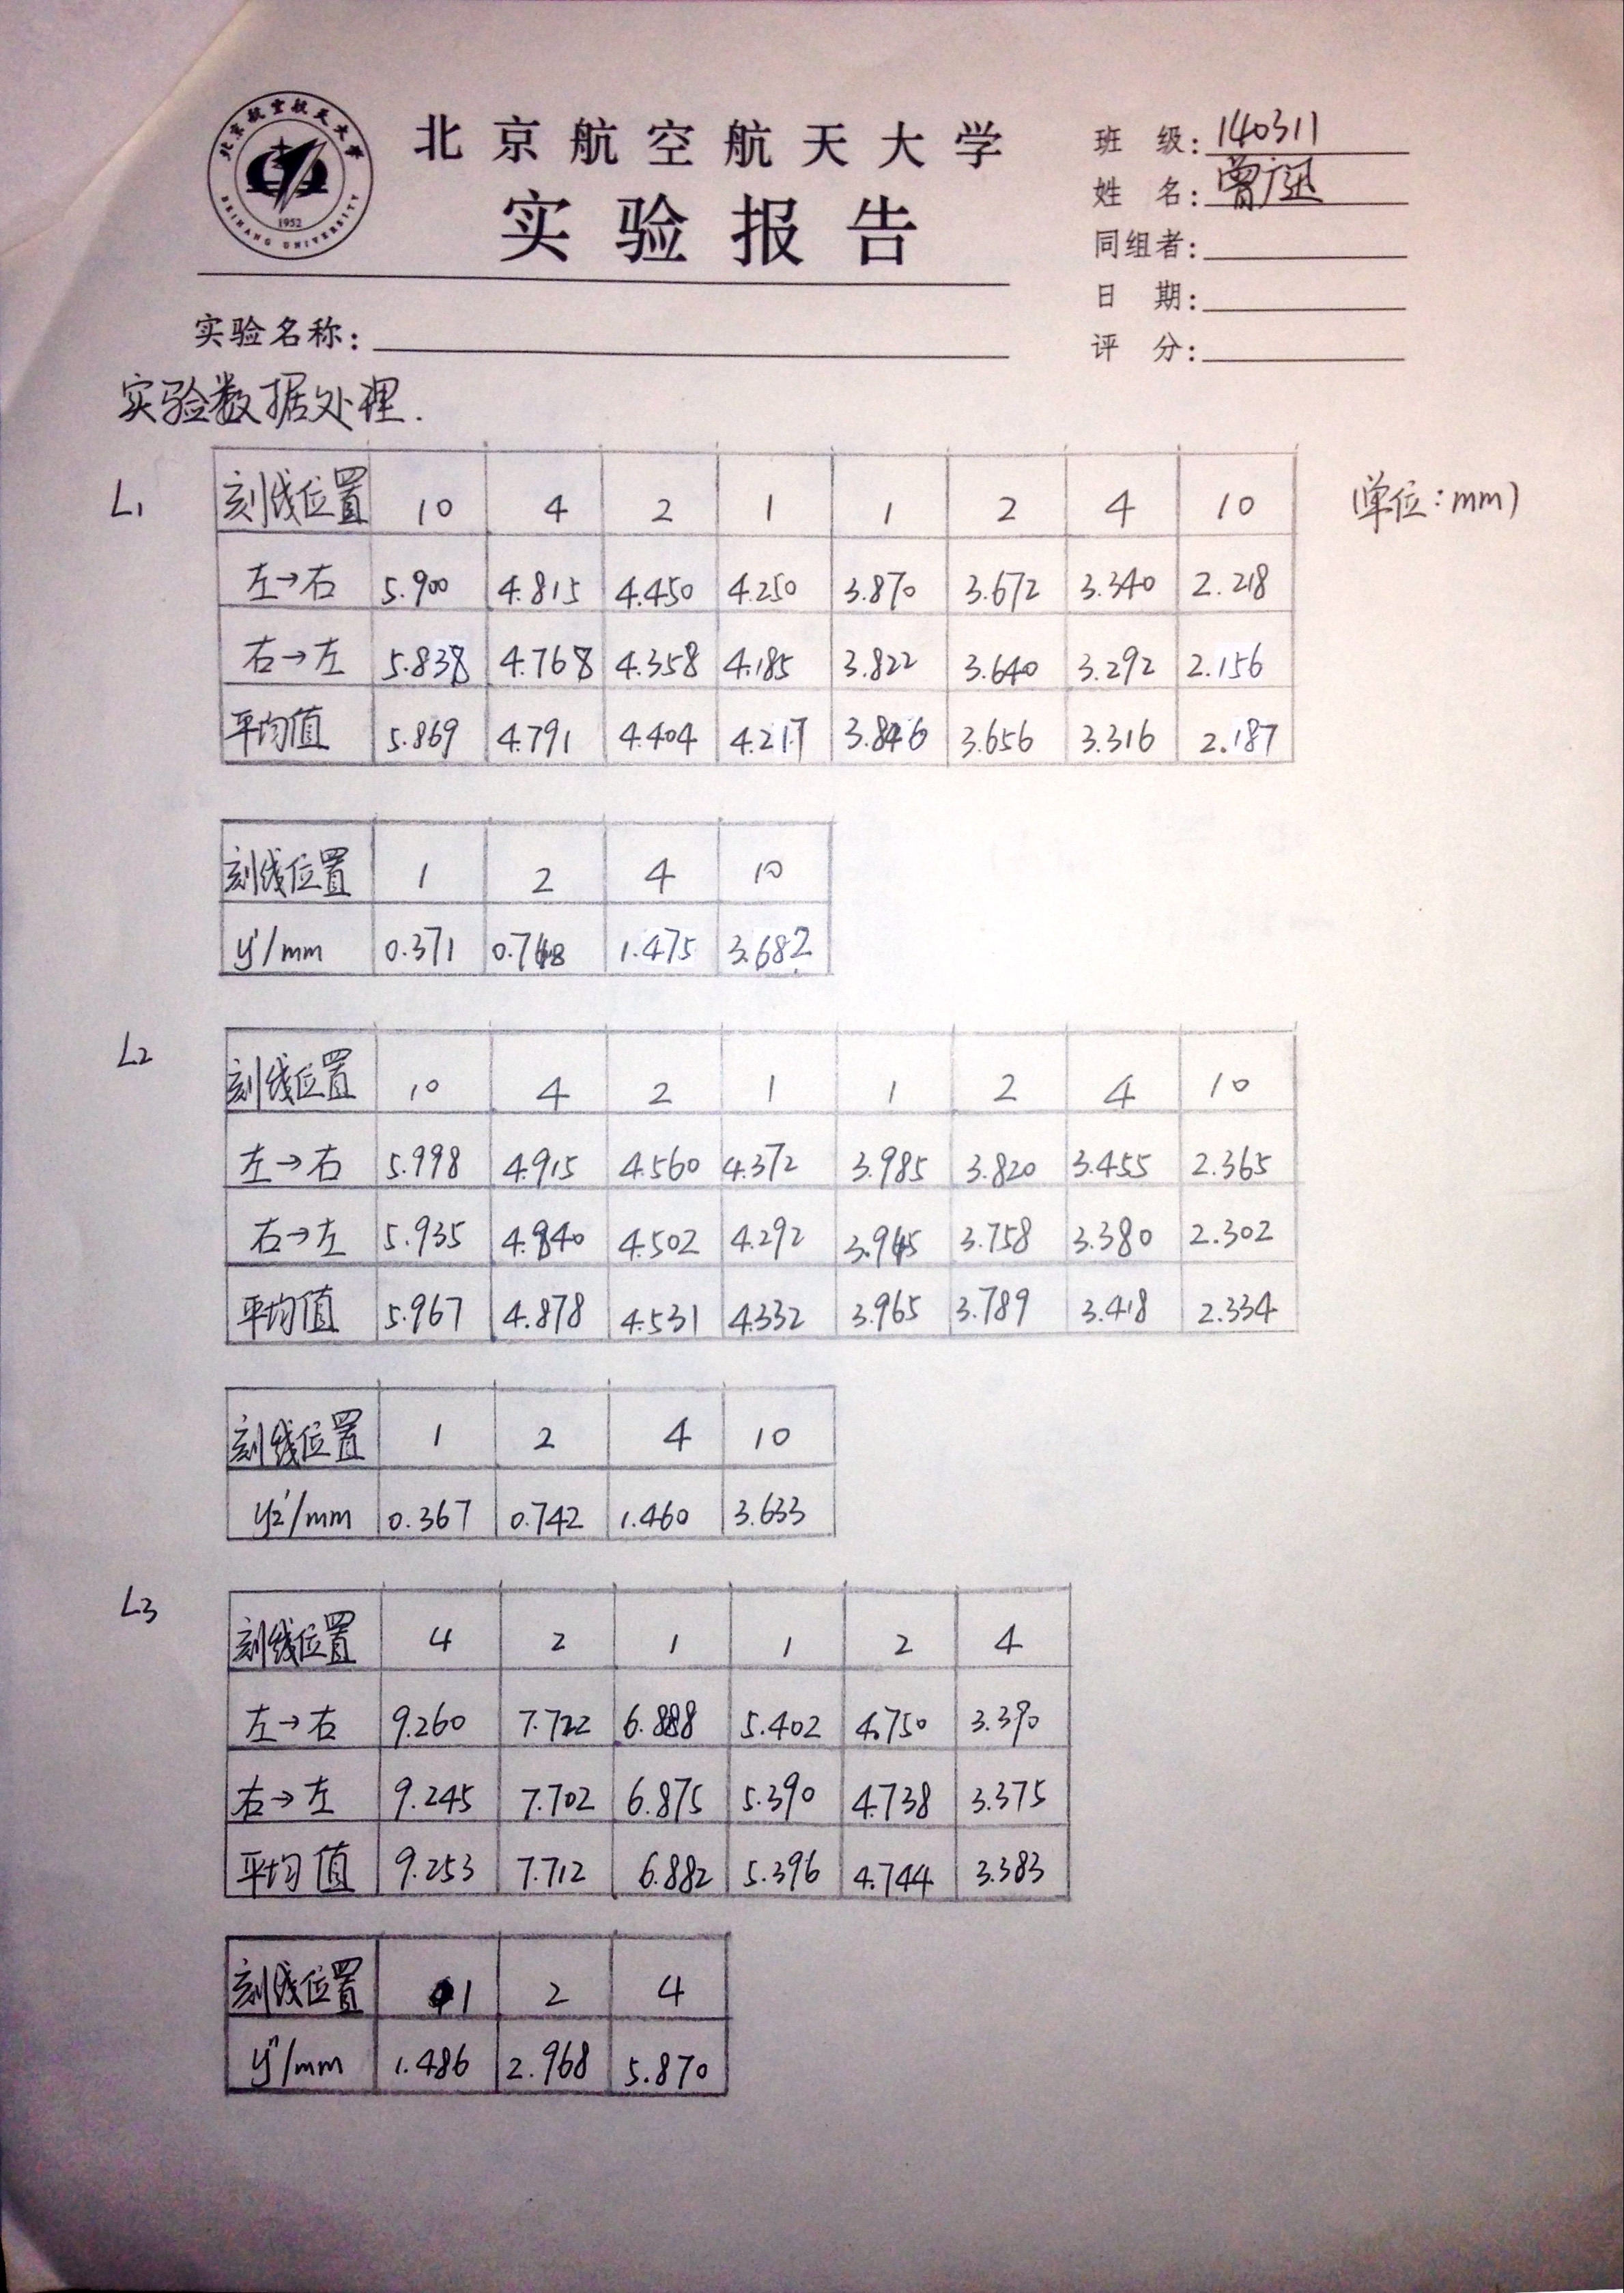 北京航空航天大学
BEIHANG UNIVERSITY
1952
北京航空航天大学
实验报告
班 级: 140311
姓 名: 曾
同组者:
日 期:
评 分:
实验名称:
实验数据处理.
L1 (单位:mm)
刻线位置 10 4 2 1 1 2 4 10
左→右 5.900 4.815 4.450 4.250 3.870 3.672 3.340 2.218
右→左 5.838 4.768 4.358 4.185 3.822 3.640 3.292 2.156
平均值 5.869 4.791 4.404 4.217 3.846 3.656 3.316 2.187
刻线位置 1 2 4 10
y'/mm 0.371 0.748 1.475 3.682
L2
刻线位置 10 4 2 1 1 2 4 10
左→右 5.998 4.915 4.560 4.372 3.985 3.820 3.455 2.365
右→左 5.935 4.840 4.502 4.292 3.945 3.758 3.380 2.302
平均值 5.967 4.878 4.531 4.332 3.965 3.789 3.418 2.334
刻线位置 1 2 4 10
y2'/mm 0.367 0.742 1.460 3.633
L3
刻线位置 4 2 1 1 2 4
左→右 9.260 7.722 6.888 5.402 4.750 3.390
右→左 9.245 7.702 6.875 5.390 4.738 3.375
平均值 9.253 7.712 6.882 5.396 4.744 3.383
刻线位置 1 2 4
y''/mm 1.486 2.968 5.870